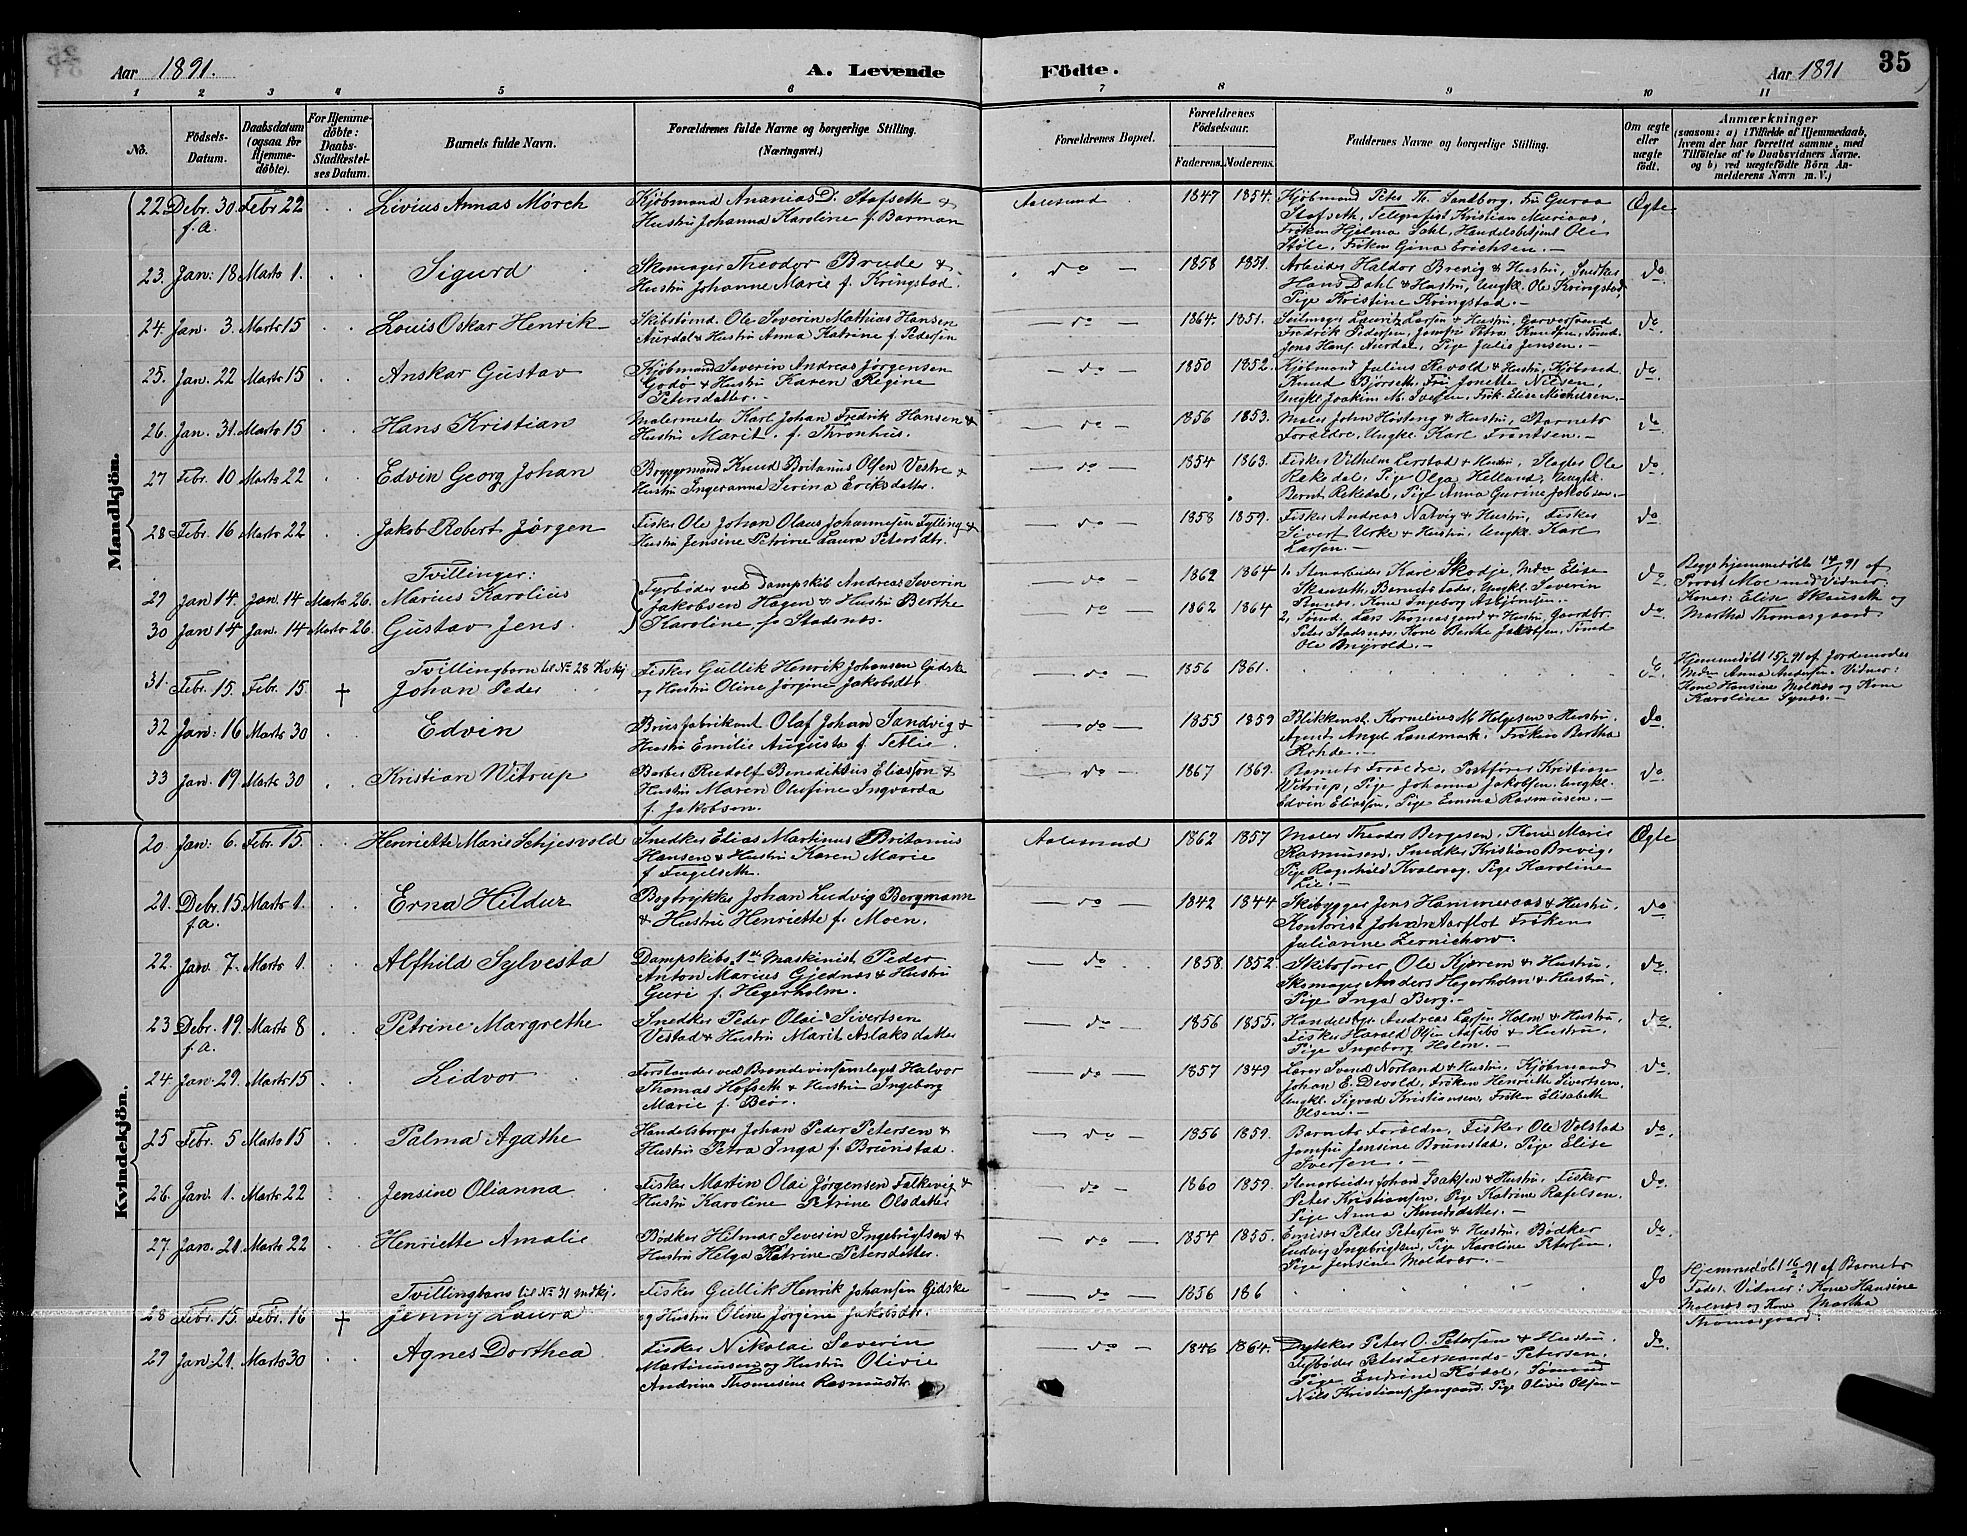 Aar 1891. A. Levende Födte. Aar 1891 35
1 2 3 4 5 6 7 8 9 10 11
No.
Födsels-Datum.
Daabsdatum (ogsaa for Hjemmedøbte).
For Hjemmedøbte: Daabs-Stadfæstelses Datum.
Barnets fulde Navn.
Forældrenes fulde Navne og borgerlige Stilling. (Næringsvei.)
Forældrenes Bopæl.
Forældrenes Födselsaar.
Faderens. Moderens.
Faddernes Navne og borgerlige Stilling.
Om ægte eller uægte født.
Anmærkninger
(saasom: a) i Tilfælde af Hjemmedaab, hvem der har forrettet samme, med Tilföielse af to Daabsvidners Navne. og b) ved uægtefödte Börn Anmelderens Navn m. V.)
Mandkjön.
22. Debr. 30 Febr 22 Livius Annas Mörch Kjöbmand Ananias D. Stafseth & Aalesund 1847 1854. Kjöbmand Peter Th. Sandborg, Fru Guroa Ægte
f. A. Hustru Johanna Karoline f. Barman Stafseth, Telegrafist Kristian
Fröken Hjelma Dahl, Handelsbetjent Ole
Støle, Fröken Gina Erichsen. —
23. Jan: 18 Marts 1. Sigurd Skomager Theodor Brude & do 1858 1851. Arbeider Haldor Brevig & Hustru, Snedker do
Hustru Johanne Marie f. Kringstad. Hans Dahl & Hustru, Ungkl. Ole Kringstad,
Pige Kristine Kringstad. —
24. Jan. 3. Marts 15 Louis Oskar Henrik Skibstømd Ole Severin Mathias Hansen do 1864. 1851. Seilmager Lauritz Larsen & Hustru, Garversvend do
Aurdal & Hustru Anna Katrine f. Pedersen Fredrik Pedersen, Jomfru Petra Knudsen, Tømd.
Jens Hans. Aurdal, Pige Julie Jensen. —
25. Jan. 22 Marts 15 Anskar Gustav Kjöbmand Severin Andreas Jørgensen do 1850 1852. Kjöbmand Julius Devold & Hustru, Kjöbmd. do.
Godø & Hustru Karen Regine Knud Børseth, Fru Jonette Nilsen,
Petersdatter. Ungkl Joakim M. Iversen, Frk. Elise Michelsen. —
26. Jan. 31. Marts 15 Hans Kristian Malermester Karl Johan Fredrik Hansen & do 1856 1853. Maler John Hösteng & Hustru, Barnets do.
Hustru Marit f. Thronhus. Forældre, Ungkl. Karl Frantsen. —
27 Febr. 10 Marts 22 Edvin Georg Johan Bryggemand Knud Britanus Olsen Vestre & do 1854 1863. Fisker Vilhelm Lerstad & Hustru, Slagter Ole do.
Hustru Ingeranna Serina Eriksdatter. Rekedal, Pige Olga Helland, Ungkl.
Bernt Rekedal, Pige Anna Gurine Jakobsen. —
28 Febr. 16 Marts 22 Jakob Robert Jörgen Fisker Ole Johan Olaus Johannesen Fylling & do 1858 1859. Fisker Andreas Natvig & Hustru, Fisker do
Hustru Jensine Petrine Laura Petersdtr. Sivert Urke & Hustru, Ungkl. Karl
Larsen. —
Tvillinger:
29 Jan 14. Jan. 14 Marts 26. Marius Karolius Fyrböder ved Dampskib Andreas Severin do 1862 1864 1. Stenarbeider Karl Skodje, Mdm Elise do Begge hjemmedøbte 14/1 91 af
30 Jan 14 Jan. 14 Marts 26. Gustav Jens. Jakobsen Hagen & Hustru Berthe do 1862 1864 Skauseth, Barnets Fader, Ungkl. Severin do. Provst Moe med Vidner
Karoline, f. Stadsnæs. Kone Ingeborg Asbjørnsen. Koner: Elise Skauseth og
2, Tømd. Lars Thomasgaard & Hustru, Gaardbr. Martha Thomasgaard.
Peter Stadsnæs, Kone Berthe Jakobsen, Tømd
Ole Brynvold. —
31. Febr. 15. Febr. 15. † Tvillingbarn til No 28 Kvkj. Johan Peder Fisker Gullik Henrik Johansen Gidske do 1856 1861. do. Hjemmedøbt 15/2 91 af Jordemoder
og Hustru Oline Jørgine Jakobsdtr Mdm Anna Andersen. Vidner:
Kone Hansine Molnæs og Kone
Karoline Synes. —
32 Jan: 16 Marts 30 Edvin Brusfabrikant Olaf Johan Sandvig & do 1855 1859 Blikkensl. Kornelius M. Helgesen & Hustru, do.
Hustru Emilie Augusta f. Tetlie. Agent Angel Landmark, Fröken Bertha
Rohde. —
33 Jan. 19. Marts 30 Kristian Witrup Barber Rudolf Benediktus Eliassen & do 1867 1869. Barnets Forældre, Postfører Kristian do.
Hustru Maren Olufine Ingvarda Witrup, Pige Johanna Jakobsen, Ungkl.
f. Jakobsen. Edvin Eliassen, Pige Emma Rasmussen. —
Kvindekjön.
20. Jan: 6. Febr. 15. Henriette Marie Schjesvold Snedker Elias Martinus Britanus Aalesund 1862 1857 Maler Theodor Bergesen, Kone Marie Ægte
Hansen & Hustru Karen Marie Rasmussen, Snedker Kristian Brevig,
f. Fugelseth. Pige Ragnhild Kvalvaag, Pige Karoline
Lie. —
21. Debr. 15. Marts 1. Erna Hildur Bogtrykker Johan Ludvig Bergmann do 1842 1844 Skibygger Jens Hammeraas & Hustru, do
f. A. & Hustru Henriette f. Moen. Kontorist Johan Aarflot, Fröken
Julianne Zernichow.
22. Jan. 7. Marts 1 Alfhild Sylvesta Dampskibs 1ste Maskinist Peder do 1858. 1852. Skibsfører Ole Kjærem & Hustru, do.
Anton Marius Gjednæs & Hustru Skomager Anders Hegerholm & Hustru,
Guri f. Hegerholm. Pige Inga Berg. —
23 Debr. 19. Marts 8 Petrine Margrethe Snedker Peder Olai Sivertsen do 1856 1855. Handelsbgr. Andreas Larsen Holm & Hustru, do.
f. A. Vestad & Hustru Marit Aslaksdatter Fisker Harald Olsen Aasebö & Hustru,
Pige Ingeborg Holm. —
24. Jan. 29. Marts 15 Lidvor Forstander ved Brændevinssamlaget Halvor do 1857 1849 Lærer Svend Norland & Hustru, Kjöbmand do.
Thomas Hofseth & Hustru Ingeborg Johan E. Devold, Fröken Henriette Sivertsen,
Marie f. Beör. Ungkl. Sigvad Kristiansen, Fröken Elisabeth
Olsen. —
25 Febr. 5 Marts 15 Palma Agathe Handelsborger Johan Peder Petersen & do 1856 1859. Barnets Forældre, Fisker Ole Volstad do.
Hustru Petra Inga f. Brunstad. Jomfru Jensine Brunstad, Pige Elise
Iversen. —
26. Jan. 1. Marts 22 Jensine Olianna Fisker Martin Olai Jørgensen Falkevig & do 1860 1859. Stenarbeider Johan Isaksen & Hustru, Fisker do.
Hustru Karoline Petrine Olsdatter Peter Kristiansen, Pige Katrine Rafelsen,
Pige Anna Knudsdatter. —
27. Jan. 21. Marts 22 Henriette Amalie Bødker Hilmar Severin Ingebrigtsen & do 1854 1855. Peter Petersen & Hustru, Bødker do.
Hustru Helga Katrine Petersdatter. Ludvig Ingebrigtsen, Pige Karoline Petersen,
Pige Jensine Moldver. —
28 Febr. 15. Febr. 16 † Tvillingbarn til No 31 Mdkj. Jenny Laura Fisker Gullik Henrik Johansen Gidske do 1856 186 do Hjemmedøbt 16/2 91 af Barnets
og Hustru Oline Jørgine Jakobsdtr. Fader. Vidner: Kone Hansine
Molnæs og Kone Martha
Thomasgaard.
29 Jan 21. Marts 30 Agnes Dorthea Fisker Nikolai Severin do 1846 1864. Dykker Peter O. Petersen & Hustru, do.
Martinussen og Hustru Olivie Fyrbøder Peter Fernando Petersen,
Andrine Thomasine Rasmusdtr. Pige Entrine Rødal, Tømand
Nils Kristians. Jangaard, Pige Olivie Olsen —